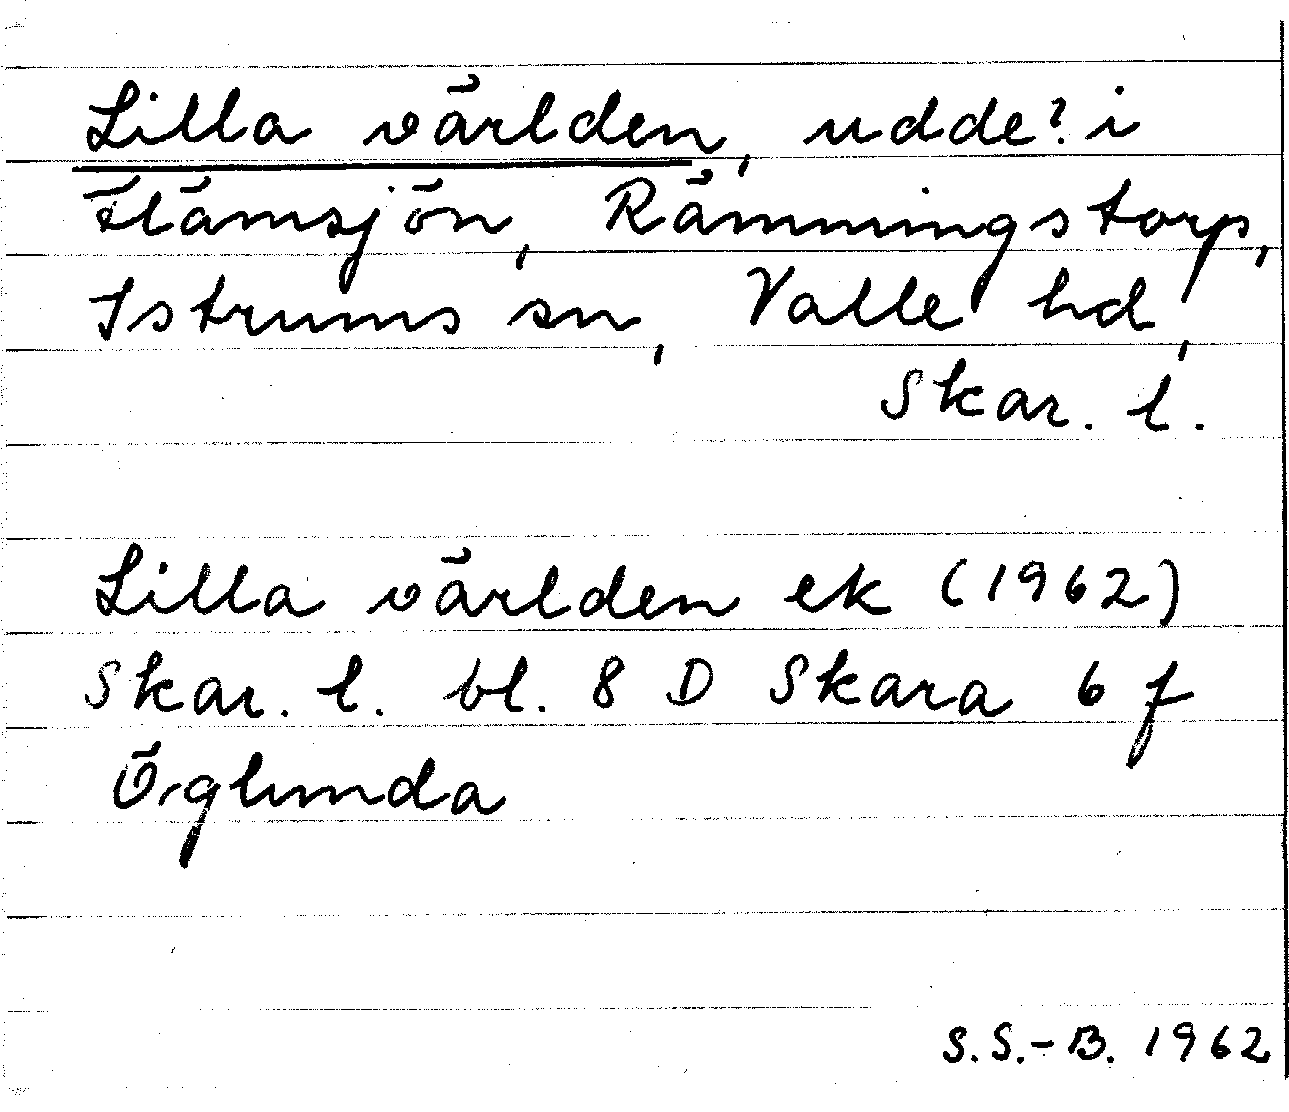 Lilla världen, udde? i
Flämsjön, Rämmingstorp,
Istrums sn, Valle hd,
Skar. l.
Lilla världen ek (1962)
Skar. l. bl. 8 D Skara 6 f
Öglunda
S.S.-B. 1962